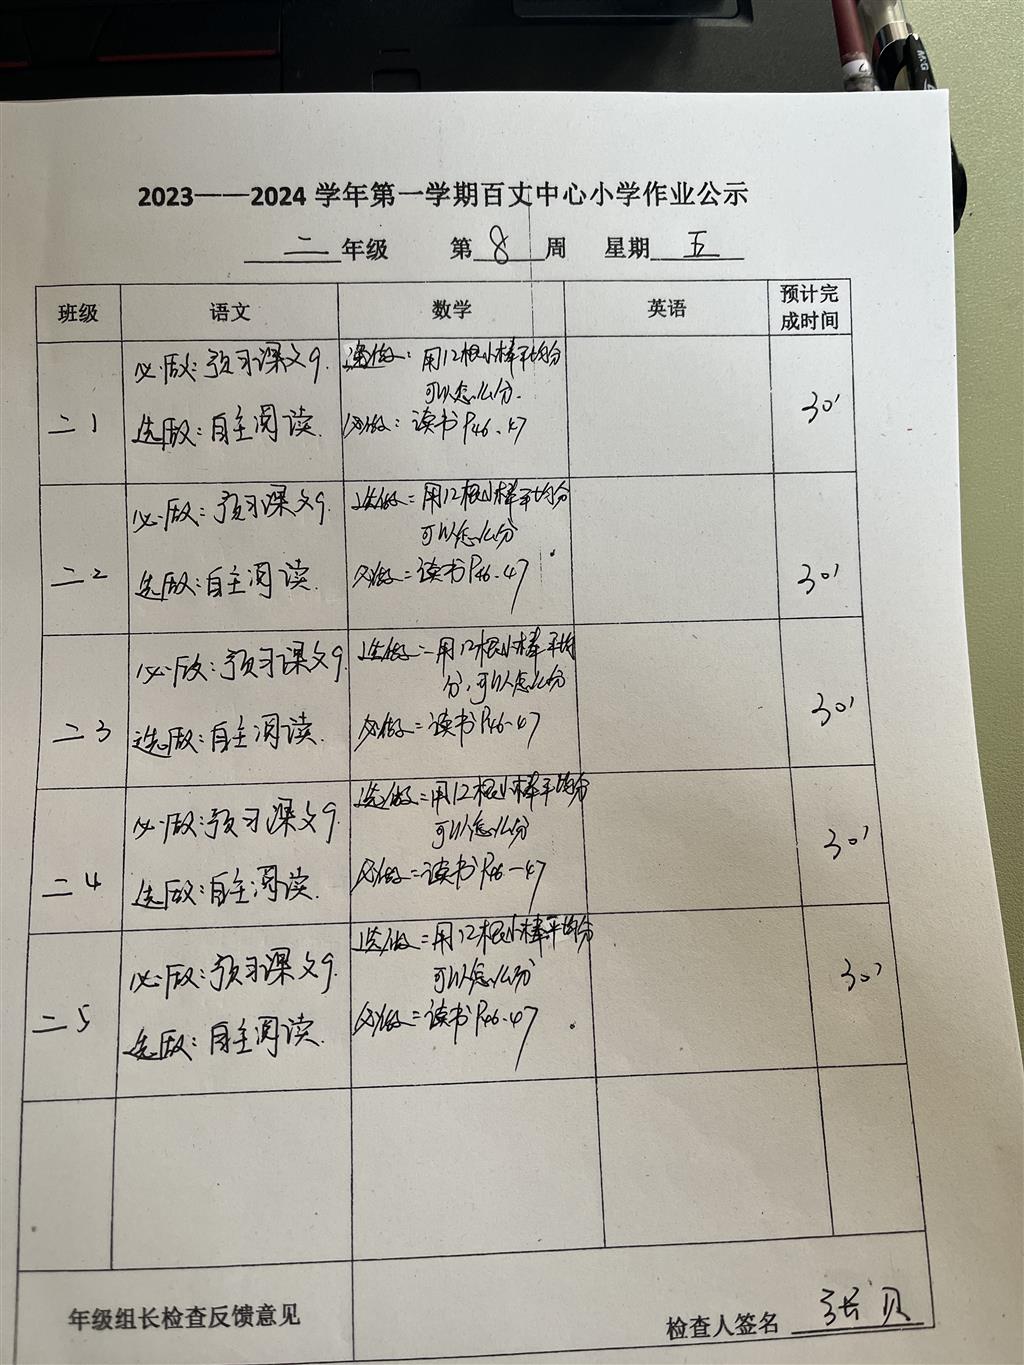 M&G
2023——2024 学年第一学期百丈中心小学作业公示
二 年级 第 8 周 星期 五
班级 语文 数学 英语 预计完成时间
二1
必做：预习课文9.
选做：自主阅读.
选做：用12根小棒平均分
可以怎么分.
必做：读书P46、47
30'
二2
必做：预习课文9.
选做：自主阅读.
选做：用12根小棒平均分
可以怎么分
必做：读书P46-47
30'
二3
必做：预习课文9.
选做：自主阅读.
选做：用12根小棒平均
分，可以怎么分
必做：读书P46-47
30'
二4
必做：预习课文9.
选做：自主阅读.
选做：用12根小棒平均分
可以怎么分
必做：读书P46-47
30'
二5
必做：预习课文9.
选做：自主阅读.
选做：用12根小棒平均分
可以怎么分
必做：读书P46-47
30'
年级组长检查反馈意见
检查人签名 张贝